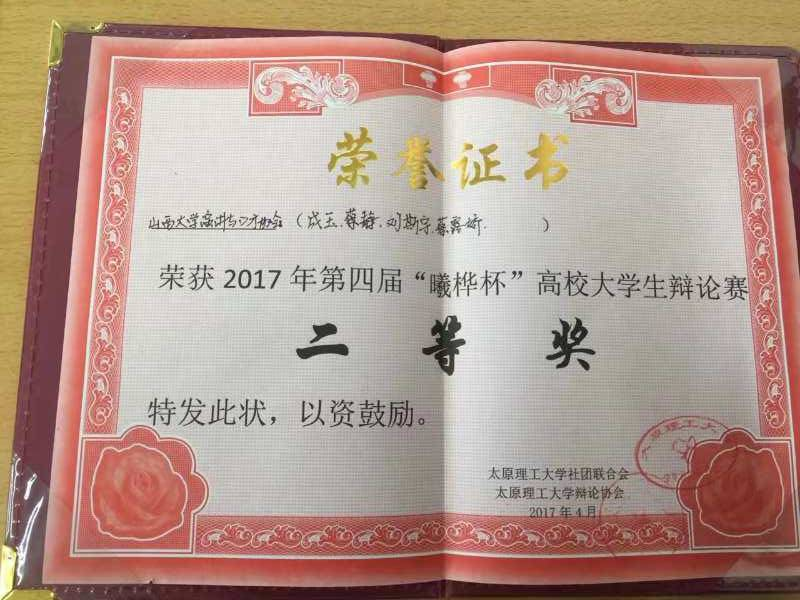 荣誉证书
山西大学演讲与口才协会（成玉、蔡静、刘斯宇、蔡露娇、）
荣获2017年第四届“曦桦杯”高校大学生辩论赛
二等奖
特发此状，以资鼓励。
太原理工大
太原理工大学社团联合会
太原理工大学辩论协会
2017年4月